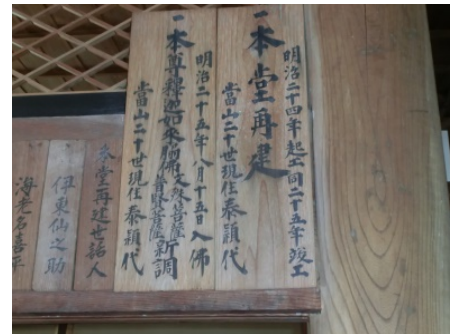 一本堂再建
明治二十四年起工同二十五年竣工
當山二十世現住泰穎代
一本尊釋迦如来脇侍文殊菩薩普賢菩薩新調
明治二十五年八月十五日入佛
當山二十世現住泰穎代
本堂再建世話人
伊東仙之助
海老名喜平